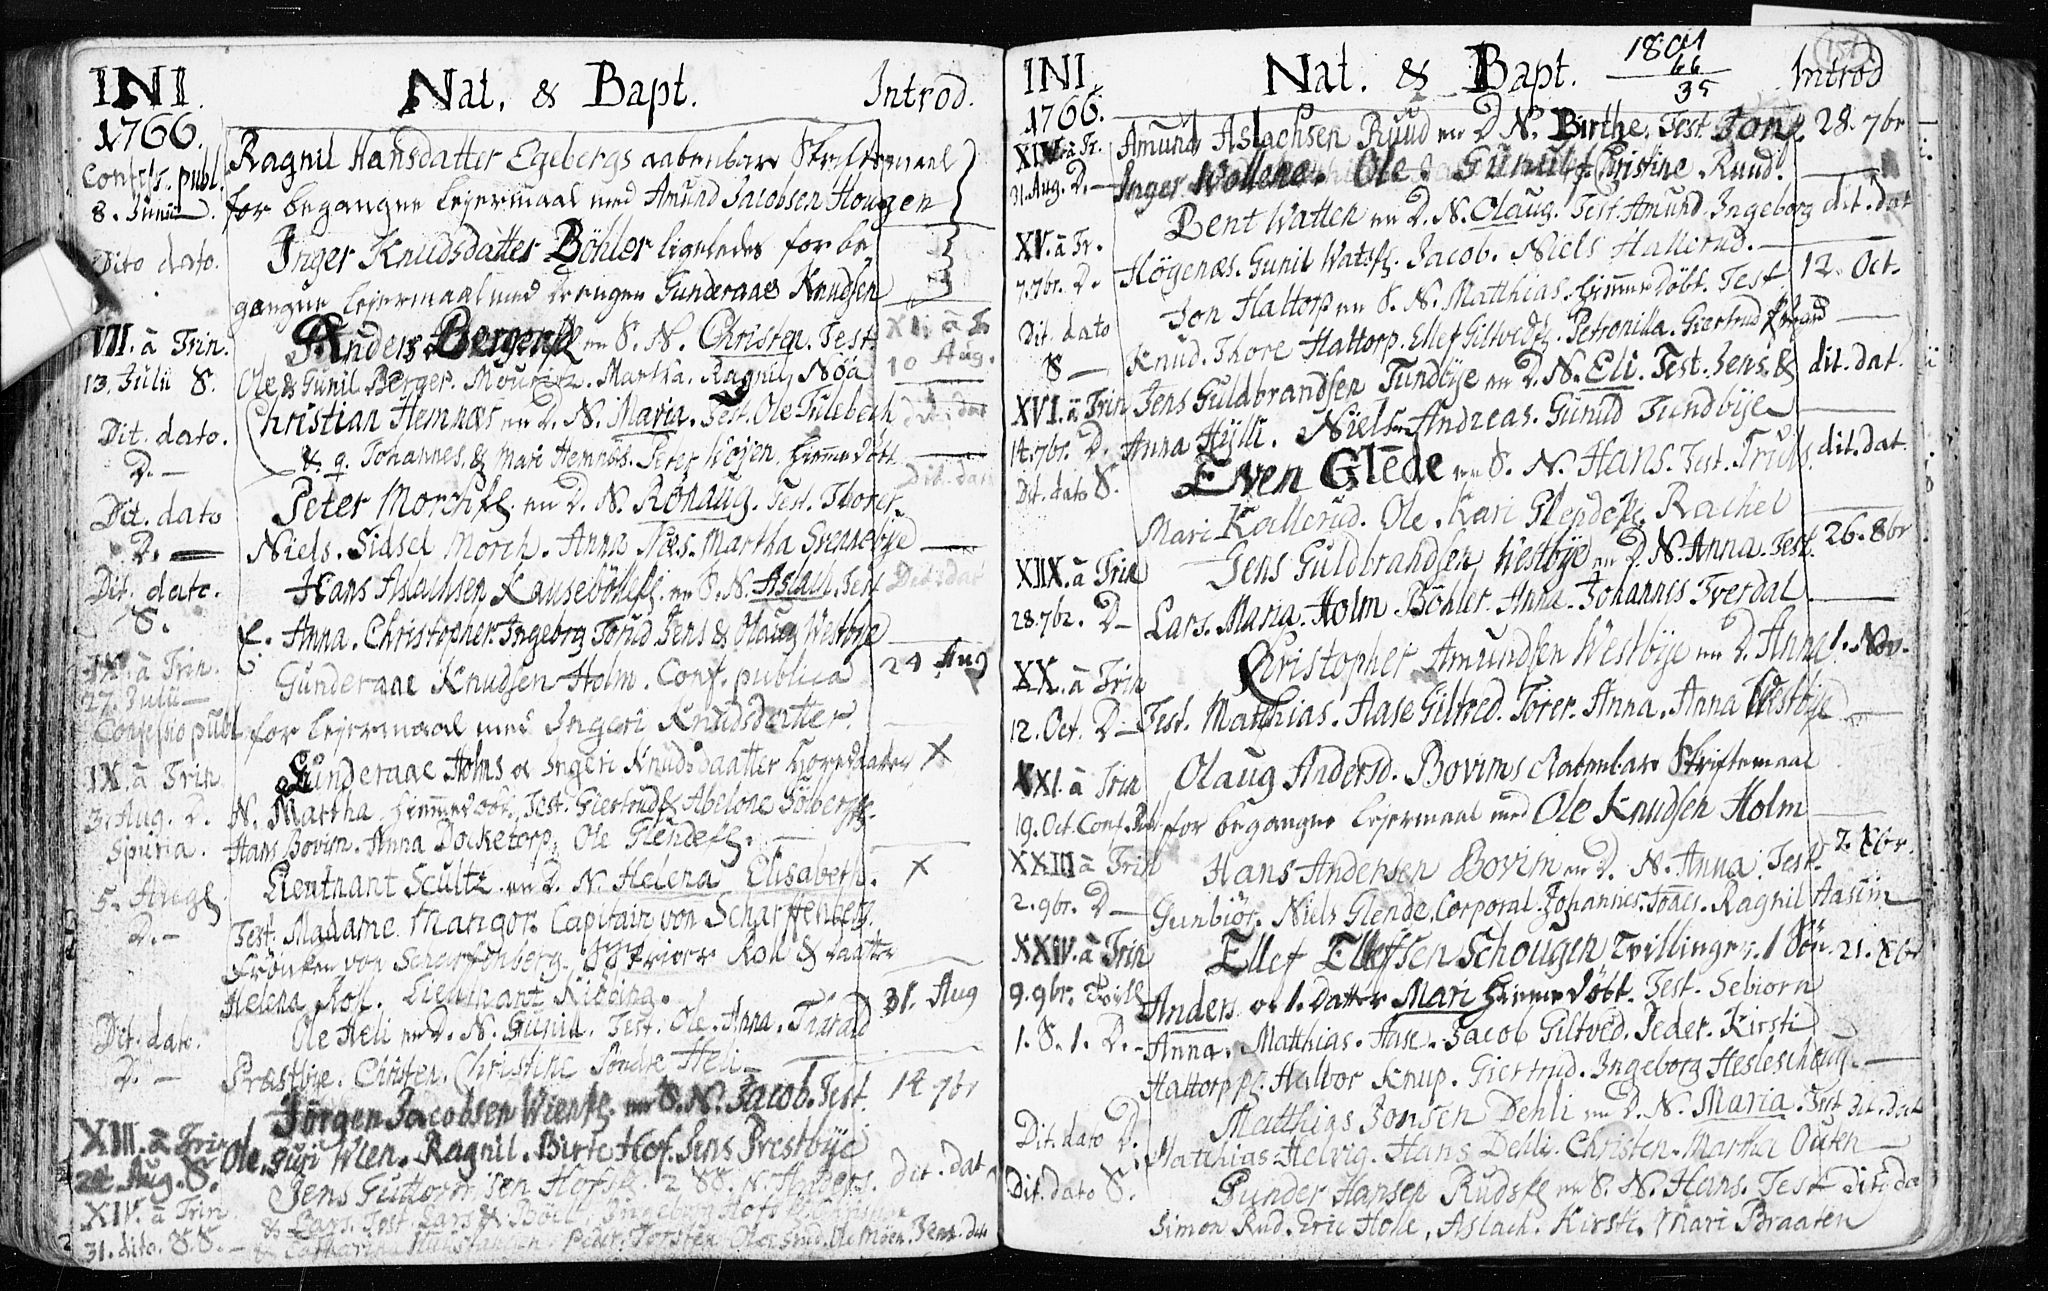 INI. Nat. & Bapt. Introd.
1766.
Confess. publ. Ragnil Hansdatter Egebergs aabenbare Skriftemaal
8. Junii. for begangne Lejermaal med Amund Jacobsen Hougen
Dito dato. Inger Knudsdatter Böhler ligeledes for be-
gangne Lejermaal med Drengen Gunderaae Knudsen
VII. à Trin. Anders Berger en S. N. Christen. Test. XI. à T.
13. Julii S. Ole & Gunil Berger. Mouritz. Martha. Ragnil Nöa 10 Aug.
Dit. dato. Christian Hemnæs en D. N. Maria. Test. Ole Tulebech dit. dat
D. - & q. Johannes. & Mari Hemnæs. Peter Højen. hjemmedöbt.
Dit. dato Peter Morch en D. N. Rönaug. Test. Thorer. Dit. dat
D. - Niels. Sidsel Morch. Anna Næs. Martha Svennebye
Dit. dato. Hans Aslachsen Kauseböl en S. N. Aslach. Test Dit. dat
S. Anna. Christopher. Ingeborg Torud Jens & Olaug Westbye
IX. à Trin. Gunderaae Knudsen Holm. Conf. publica 24 Aug
27. Julii
Confessio publ. for Lejermaal med Ingeri Knudsdatter.
IX. à Trin Gunderaae Holms & Ingeri Knudsdaatter Horedaatter X
3. Aug. D. N. Martha. hjemmedöbt. Test. Giertrud & Abelone Sölberg
Spuria. Hans Bovim. Anna Docketorp. Ole Glende
5. Aug. Lieutnant Scultz en D. N. Helena Elisabeth. X
D. - Test. Madame Mangor. Capitain von Scharffenberg.
Fröiken von Scharfenberg. Roll & daatter
Helena Roll. Lieutnant
Dit. dato. Ole Heli en D. N. Gunill. Test. Ole. Anna. Taarald 31. Aug
D. - Præstbye. Christen. Christine Söndre Heli
Jörgen Jacobsen Wien en S. N. Jacob. Test. 14 7br
XIII. à Trin Ole, Guri Wien. Ragnil. Birte Hof. Jens Prestbye
24. Aug. S. Jens Guttormsen Hof 2 SS. N. Anders. dit. dat
XIV. à Trin. & Lars. Test. Lars & Böel. Ingeborg Hof
31. dito. S.S. - & Catharina Peder. Torsten. Moen. Jens
INI. Nat. & Bapt. 1801 Introd
1766. 66
35
XIV à Tr. Amund Aslachsen Ruud en D. N. Birthe. Test Jon & 28. 7br
31. Aug. D. - Inger Wollene. Ole & Gunil Christine Ruud.
XV. à Tr. Bent Watten en D. N. Olaug. Test. Amund. Ingeborg dit. dat
7. 7br. D. Högenæs. Gunil Wats. Jacob. Niels Hallerud.
Dit. dato Jon Hattorp en S. N. Matthias. hjemmedöbt. Test 12. Oct.
S - Knud. Thore Hattorp. Ellef Giltved. Petronilla. Giertrud
XVI. à Trin Jens Guldbrandsen Tundbye en D. N. Eli. Test. Jens. & dit. dat.
14. 7br. D. Anna Hylli. Niels. Andreas. Gunild Tundbye
Dit. dato S. Even Glede en S. N. Hans. Test. Truls. dit. dat.
Mari Kallerud. Ole. Kari Glende. Rachel
XIIX. à Trin Jens Guldbrandsen Westbye en D. N. Anna. Test. 26. 8br
28. 7br. D - Lars. Maria. Holm. Böhler. Anna. Johannes Tverdal
XX. à Trin Christopher Amundsen Westbye en D. Anne 1. Nov.
12. Oct. D - Test. Matthias. Aase Giltved. Torer. Anna. Anna Westbye
XXI. à Trin Olaug Andersd. Bovims Aabenbare Skriftemaal
19. Oct. Conf. Publ for begangne Lejermaal med Ole Knudsen Holm
XXIII à Trin Hans Andersen Bovim en D. N. Anna. Test. 2. Xbr.
2. 9br. D - Gunbiör. Niels Glende. Corporal. Johannes. Ragnil Aasum
XXIV. à Trin Ellef Elleffsen Schougen Tvillinger. 1 Sön 21. Xbr
9. 9br. Tvill Anders & 1. Datter Mari hjemmedöbt. Test. Sebiorn
1. S. 1. D. - Anna. Matthias. Aase. Jacob Giltved. Peder. Kirsti
Hattorp. Halvor Knup. Giertrud. Ingeborg Hesleschoug.
Dit. dato D. Matthias Jonsen Dehli en D. N. Maria. Test dit. dat
Matthias. Helvig. Hans Dehli. Christen. Martha Outen
Dit. dato S. Gunder Hansen Ruds en S. N. Hans. Test dit. da
Simon Rud. Eric Hole. Aslach. Kirsti. Mari Braaten